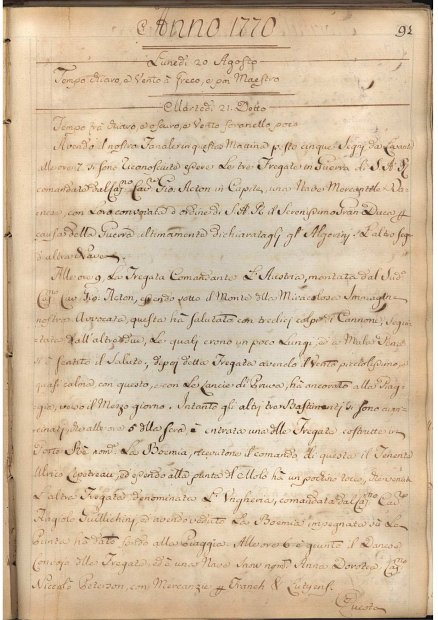 Anno 1770
91
Lunedi 20 Agosto
Tempo chiaro, e Vento à Greco, e poi Maestro
Martedi 21. Detto
Tempo frà chiaro, e oscuro, e Vento
Avendo il nostro Fanale questa Mattina posto cinque Segni da Levante
alle ore 7 si sono riconosciute essere Le tre Fregate in Guerra di S. A. R.
comandate dal Cav. Gio. Acton in Capite, una Nave Mercantile
con Loro e ordine di S. A. R. il Serenissimo Gran Duca
causa della Guerra ultimamente dichiarata gl' Algerini. L'altro Seg.
è altra Nave
Alle ore 9. La Fregata Comandante L'Austria, montata dal Sud.
Cav. Gio. Acton, essendo sotto il Monte della Miracolosa Immagine
nostra Avvocata, questa ha salutato con tredici colpi di Cannone,
dall'altre due, Le quali erono un poco Lungi, e a Mala
si è sentito il Saluto, dipoi detta Fregata avendo il Vento piccolissimo, e
quasi calma con questo, e con Le Lancie di Prova, ha ancorato alla Piag-
gia, verso il Mezzo giorno. Intanto gli altri tre Bastimenti si sono
alle ore 5 della Sera, è entrata una delle Fregate costrutte in
Porto La Boemia, ricevutone il comando di questa il Tenente
Ulrico ed essendo alla punta del Molo ha un pochino toccò, che venuta
L'altra Fregata denominata L'Ungheria, comandata dal Cav.
Angiolo ed avendo veduto La Boemia la
Punta ha dato fondo alla Piaggia. Alle ore 6 è giunto il Danese
Convoja delle Fregate, ed è una Nave Snow nom. Anna Dorotea Cap.
Niccolò Peterson, con Mercanzie Franck & Lutyens.
Questa